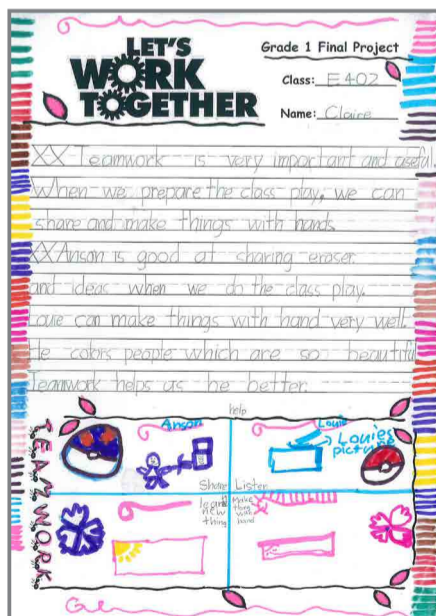 LET'S
WORK
TOGETHER
Grade 1 Final Project
Class: E402
Name: Claire
XX Teamwork is very important and useful.
When we prepare the class play, we can
share and make things with hands
XXAnson is good at sharing eraser
and ideas when we do the class play.
Louie can make things with hand very well.
He colors people which are so beautiful
Teamwork helps us be better.
help
TEAMWORK
Anson
Louie
Louies
picture
Share
Listen
learn
new
thing
Make
thing
with
hand